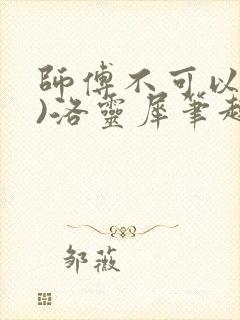 師傅不可以
)洛靈犀筆趣
邹薇